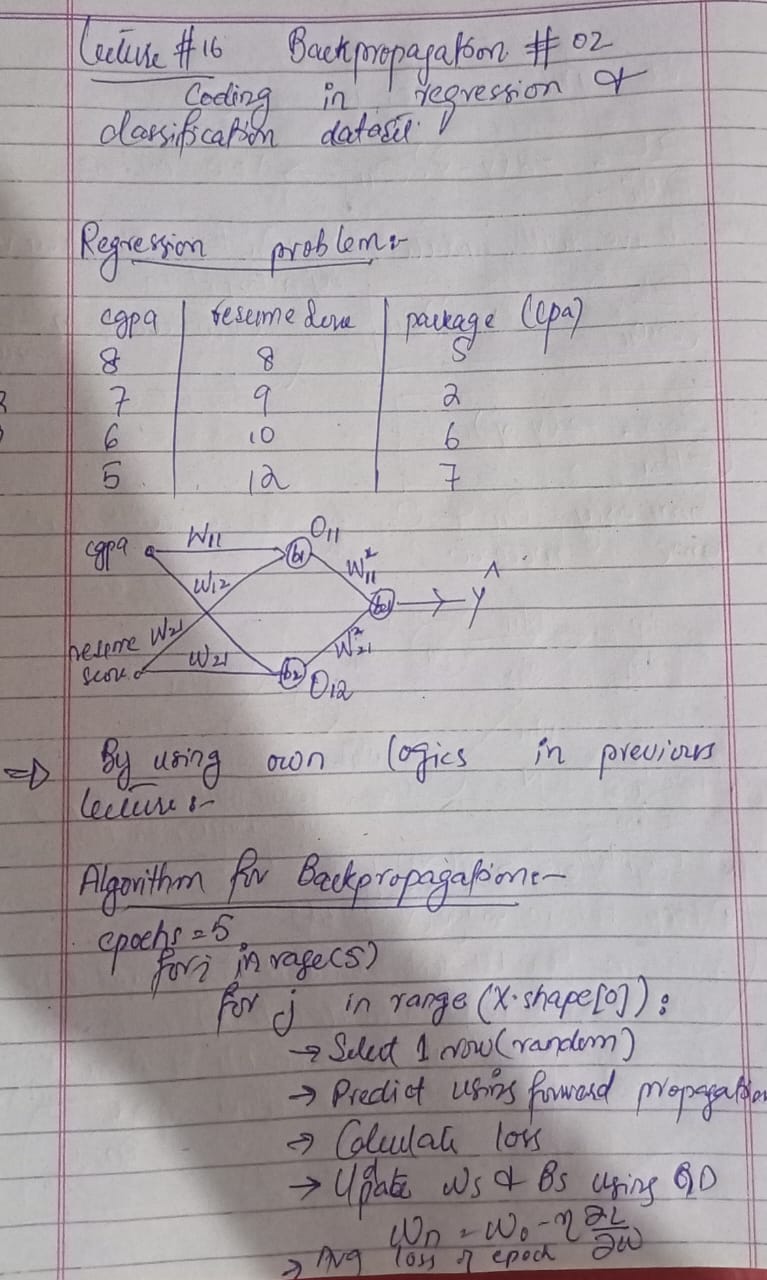 Lecture #16 Backpropagation # 02
Coding in regression &
classification dataset.
Regression problem:-
cgpa | resume score | package (lpa)
8 | 8 | 5
7 | 9 | 2
6 | 10 | 6
5 | 12 | 7
cgpa W11 b1 O11 W²11
W12 b21 → ŷ
resume W21 W²21
score W21 b2 O12
⇒ By using own logics in previous
lecture :-
Algorithm for Backpropagation:-
epochs = 5
for i in rage(5)
for j in range (X.shape[0]) :
→ Select 1 row (random)
→ Predict using forward propagation
→ Calculate loss
→ Update Ws & Bs using GD
Wn = Wo - η ∂L/∂w
→ Avg loss of epoch